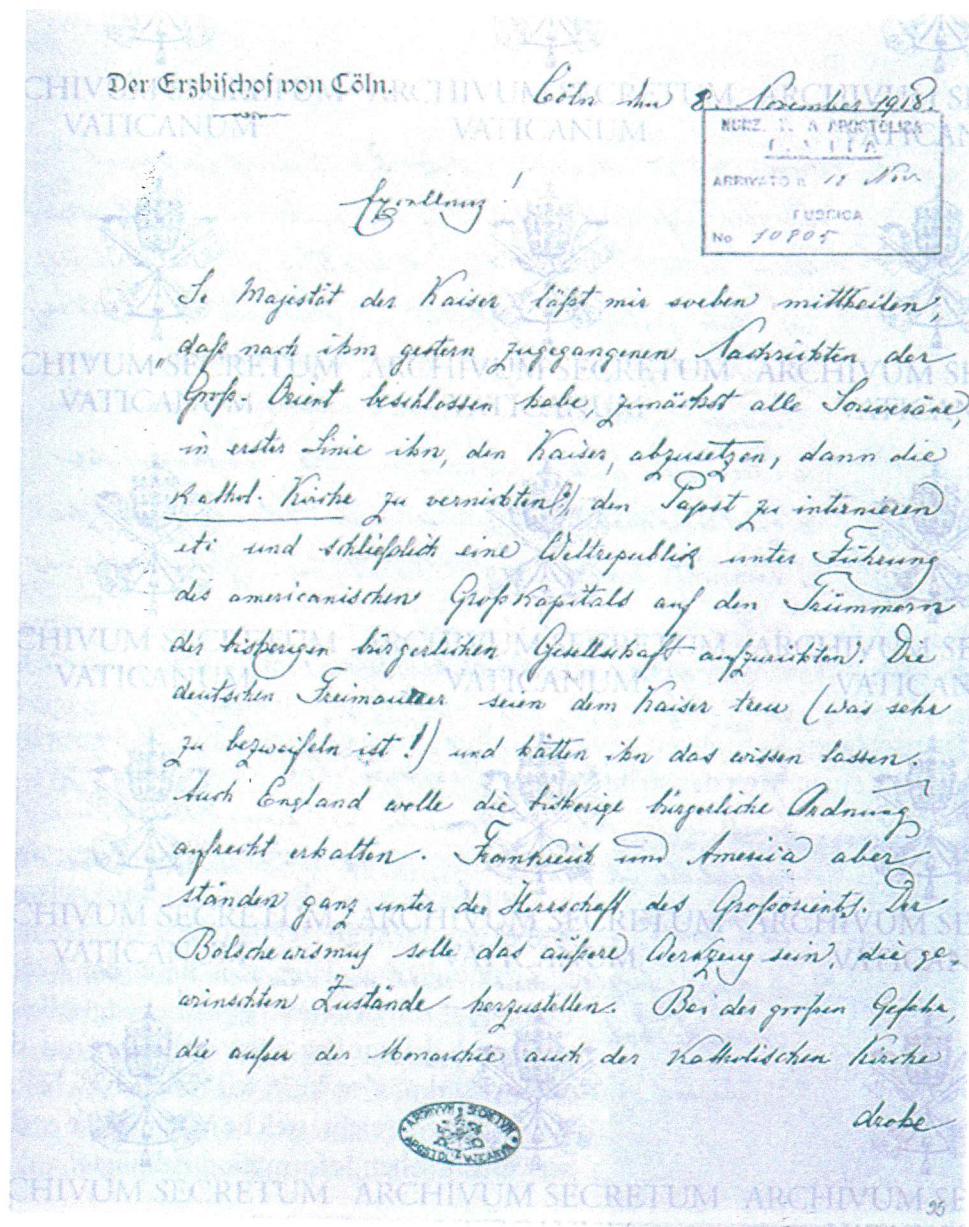 Der Erzbischof von Cöln.
Cöln den 8. November 1918.
NUNZ. A APOSTOLICA
ARRIVATO il 12 Nov.
RUBRICA
No 10805
Excellenz!
Se Majestät der Kaiser läßt mir soeben mittheilen,
„daß nach ihm gestern zugegangenen Nachrichten der
Groß-Orient beschlossen habe, zunächst alle Souveräne,
in erster Linie ihn, den Kaiser, abzusetzen, dann die
kathol. Kirche zu vernichten(?), den Papst zu internieren
etc und schließlich eine Weltrepublik unter Führung
des americanischen Großkapitals auf den Trümmern
der bisherigen bürgerlichen Gesellschaft aufzurichten. Die
deutschen Freimaurer seien dem Kaiser treu (was sehr
zu bezweifeln ist!) und hätten ihn das wissen lassen.
Auch England wolle die bisherige bürgerliche Ordnung
aufrecht erhalten. Frankreich und America aber
ständen ganz unter der Herrschaft des Großorients. Der
Bolschewismus solle das äußere Werkzeug sein, die ge-
wünschten Zustände herzustellen. Bei der großen Gefahr,
die außer der Monarchie auch der Katholischen Kirche
drohe
ARCHIVUM SECRETUM
APOSTOL. VATICANUM
ARCHIVUM SECRETUM
VATICANUM
95